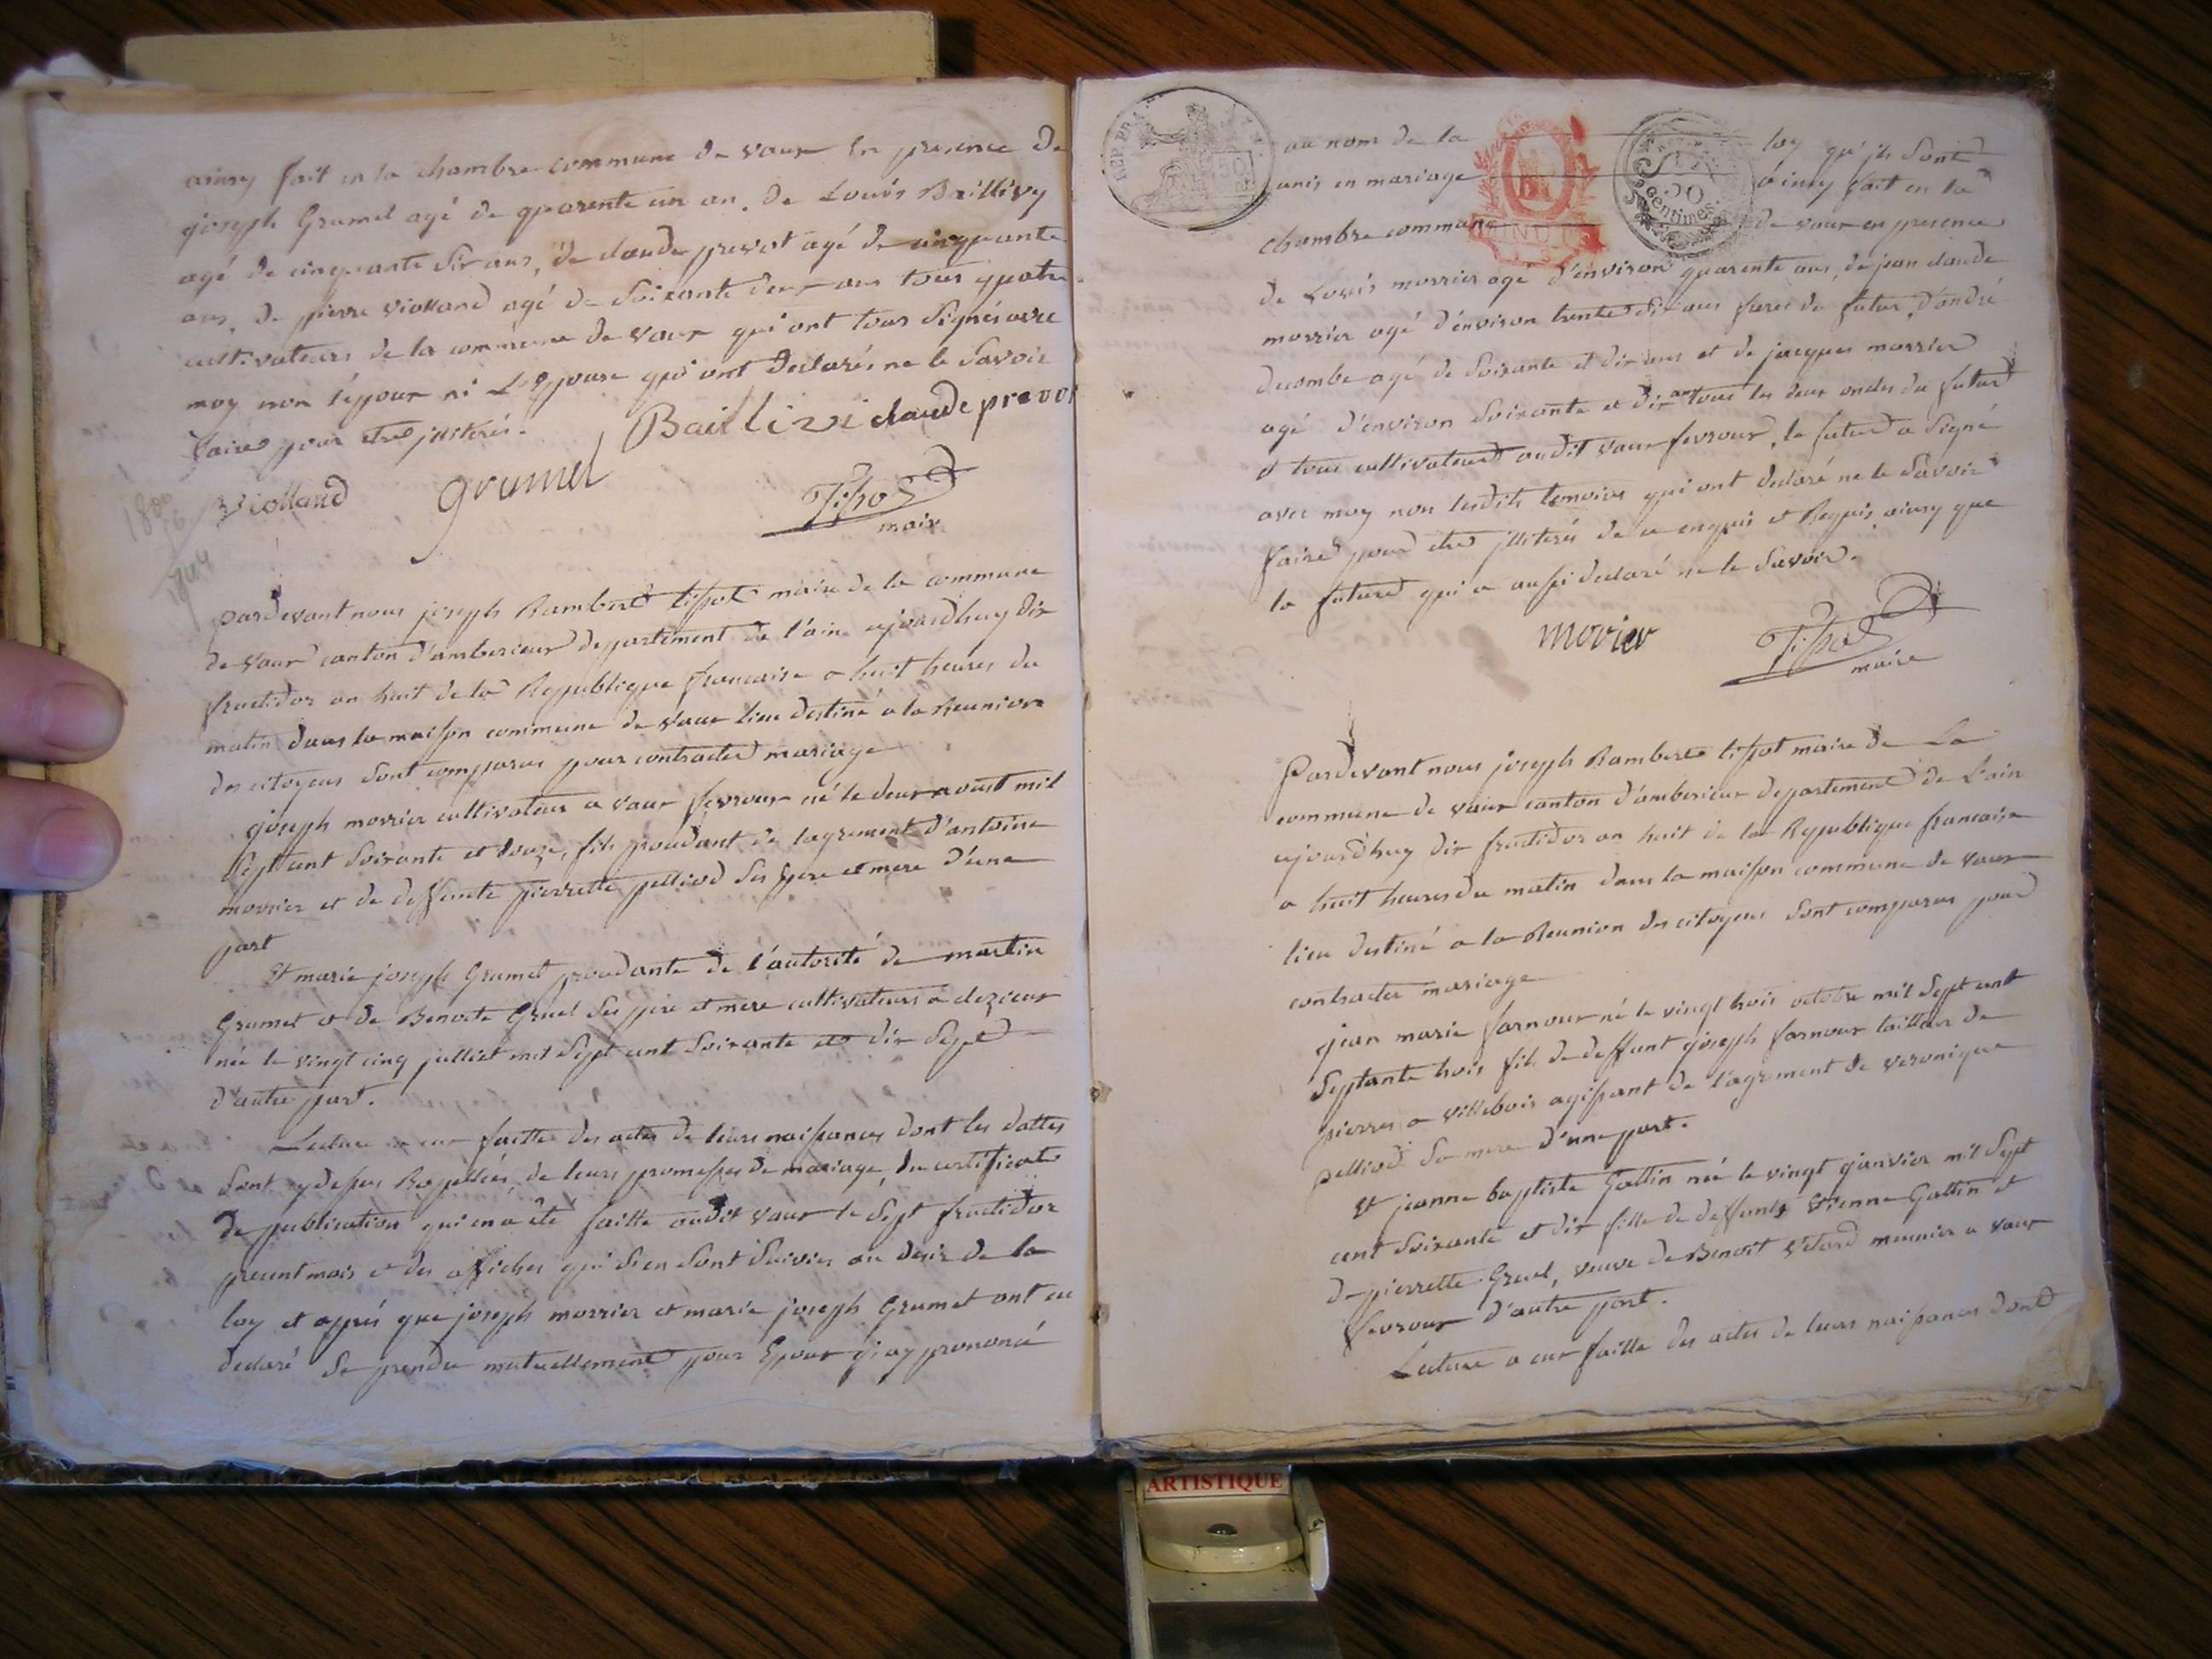 ainsy fait en la chambre commune de vaux en presence de
joseph Grumet agé de quarente un an, de Louis Baillivy
agé de cinquante six ans, de claude prevot agé de cinquante
ans, de pierre violland agé de soixante deux ans tous quatre
cultivateurs de la commune de vaux qui ont tous signés avec
moy non l'epoux ni L'Epouse qui ont declarés ne le savoir
faire pour etre jlliterés.
Baillivi claude prevot
violland grumel
Tissot
maire
pardevant nous joseph Rambert tissot maire de la commune
de vaux canton d'amberieux departement de l'ain ajourdhuy dix
fructidor an huit de la Republique francaise a huit heures du
matin dans la maison commune de vaux lieu destiné a la Reunion
des citoyens sont comparus pour contracter mariage
joseph morrier cultivateur a vaux fevroux né le deux aoust mil
sept cent soixante et douze, fils proudant de lagrement d'antoine
morrier et de deffunte pierrette pelliod ses pere et mere d'une
part
Et marie joseph Grumet proudante de l'autorité de martin
Grumet et de Benoite Gruel ses pere et mere cultivateurs a clezieux
née le vingt cinq julliet mil sept cent soixante et dix sept
d'autre part.
Lecture a eux faitte des actes de leurs naissances dont les dattes
sont cy dessus Rapellées, de leurs promesses de mariage, du certificat
de publication qui en a été faitte audit vaux le sept fructidor
present mois et des affiches qui s'en sont suivies au desir de la
loy et apprés que joseph morrier et marie joseph Grumet ont eu
declaré se prendre mutuellement pour Epoux j'ai prononcé
REP. FRA.
50
au nom de la loy qu'ils sont
50
centimes
unis en mariage ainsy fait en la
chambre commune de vaux en presence
de Louis morrier agé d'environ quarente ans, de jean claude
morrier agé d'environ trente six ans freres du futur, d'andré
decombe agé de soixante et dix ans et de jacques morrier
agé d'environ soixante et dix ans tous les deux oncles du futur
et tous cultivateurs audit vaux fevroux, le futur a signé
avec moy non lesdits temoins qui ont declaré ne le savoir
faire pour etre jlliterés de ce enquis et Requis ainsy que
la future qui a aussi declaré ne le savoir.
morier
Tissot
maire
Pardevant nous joseph Rambert tissot maire de La
commune de vaux canton d'amberieux departement de l'ain
ajourdhuy dix fructidor an huit de la Republique francaise
a huit heures du matin dans la maison commune de vaux
lieu destiné a la Reunion des citoyens sont comparus pour
contracter mariage
jean marie farnoux né le vingt trois octobre mil sept cent
septante trois fils de deffunt joseph farnoux tailleur de
pierres a villebois agissant de l'agrement de veronique
pelliod sa mere d'une part.
Et jeanne baptiste Gallin née le vingt janvier mil sept
cent soixante et dix fille de deffunts Etienne Gallin et
de pierrette Gruel, veuve de Benoit velard meunier a vaux
fevroux d'autre part.
Lecture a eux faitte des actes de leurs naissances dont
ARTISTIQUE